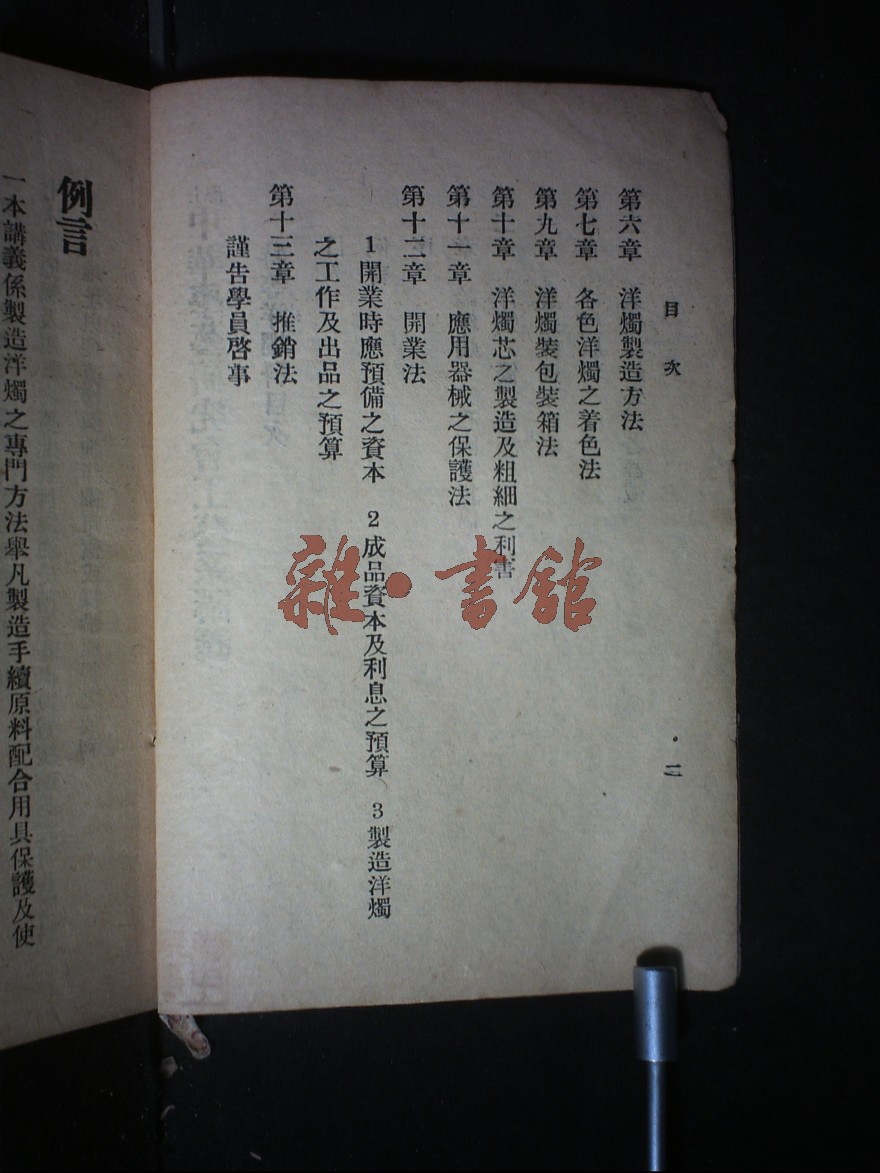 目次
二
第六章 洋燭製造方法
第七章 各色洋燭之着色法
第九章 洋燭裝包裝箱法
第十章 洋燭芯之製造及粗細之利害
第十一章 應用器械之保護法
第十二章 開業法
1 開業時應預備之資本 2 成品資本及利息之預算 3 製造洋燭
之工作及出品之預算
第十三章 推銷法
謹告學員啓事
例言
一本講義係製造洋燭之專門方法舉凡製造手續原料配合用具保護及使
雜·書館